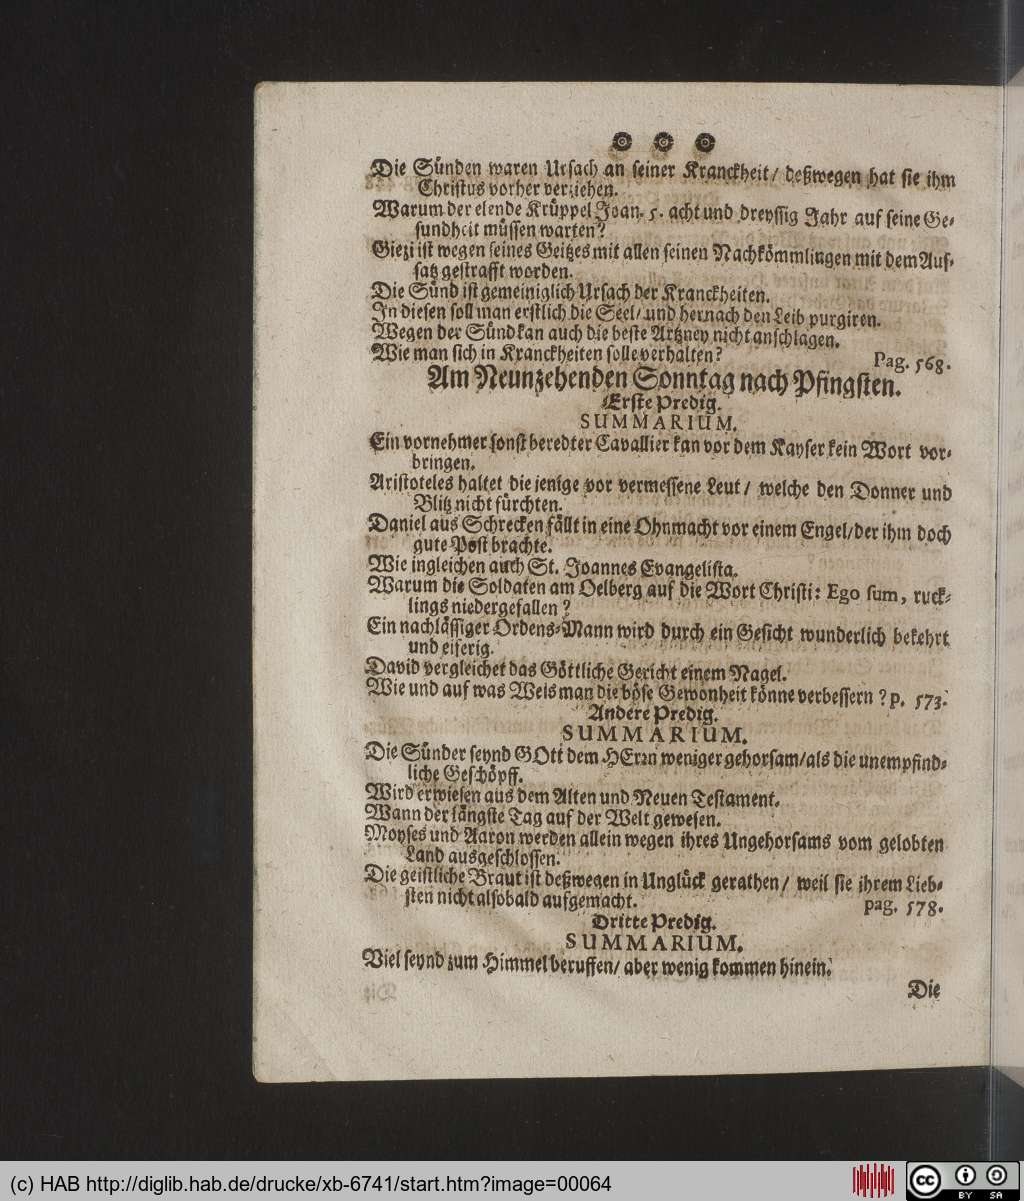 Die Sünden waren Ursach an seiner Kranckheit/ deßwegen hat sie ihm
Christus vorher verziehen.
Warum der elende Krüppel Joan. 5. acht und dreyssig Jahr auf seine Ge-
sundheit müssen warten?
Giezi ist wegen seines Geitzes mit allen seinen Nachkömmlingen mit dem Auf-
satz gestrafft worden.
Die Sünd ist gemeiniglich Ursach der Kranckheiten.
In diesen soll man erstlich die Seel/ und hernach den Leib purgiren.
Wegen der Sünd kan auch die beste Artzney nicht anschlagen.
Wie man sich in Kranckheiten solle verhalten? Pag. 568.
Am Neunzehenden Sonntag nach Pfingsten.
Erste Predig.
SUMMARIUM.
Ein vornehmer sonst beredter Cavallier kan vor dem Kayser kein Wort vor-
bringen.
Aristoteles haltet die jenige vor vermessene Leut/ welche den Donner und
Blitz nicht fürchten.
Daniel aus Schrecken fällt in eine Ohnmacht vor einem Engel/ der ihm doch
gute Post brachte.
Wie ingleichen auch St. Joannes Evangelista.
Warum die Soldaten am Oelberg auf die Wort Christi: Ego sum, ruck-
lings niedergefallen?
Ein nachlässiger Ordens-Mann wird durch ein Gesicht wunderlich bekehrt
und eiferig.
David vergleichet das Göttliche Gericht einem Nagel.
Wie und auf was Weis man die böse Gewonheit könne verbessern? p. 573.
Andere Predig.
SUMMARIUM.
Die Sünder seynd GOtt dem HErrn weniger gehorsam/ als die unempfind-
liche Geschöpff.
Wird erwiesen aus dem Alten und Neuen Testament.
Wann der längste Tag auf der Welt gewesen.
Moyses und Aaron werden allein wegen ihres Ungehorsams vom gelobten
Land ausgeschlossen.
Die geistliche Braut ist deßwegen in Unglück gerathen/ weil sie ihrem Lieb-
sten nicht alsobald aufgemacht. pag. 578.
Dritte Predig.
SUMMARIUM.
Viel seynd zum Himmel beruffen/ aber wenig kommen hinein.
Die
(c) HAB http://diglib.hab.de/drucke/xb-6741/start.htm?image=00064
cc BY SA